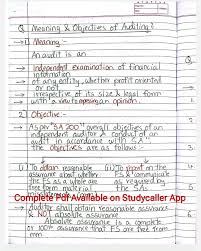 Q. Meaning & Objectives of Auditing?
1) Meaning:-
An audit is an
→ independent examination of financial
information
→ of any entity, whether profit oriented
or not
→ irrespective of its size & legal form
→ with a view to expressing an opinion.
2) Objective:-
→ As per "SA 200" overall objectives of an
independent auditor & conduct of an
audit in accordance with SA
the objectives are as follows:-
(i) To obtain reasonable
assurance about whether
FS as a whole are
free from material
misstatement
(ii) To report on the
FS & communicate
as required by
the SAs
Complete Pdf Available on Studycaller App
→ Auditor shall obtain reasonable assurance
& NOT absolute assurance.
Absolute assurance is a complete
or 100% assurance that FS are free from